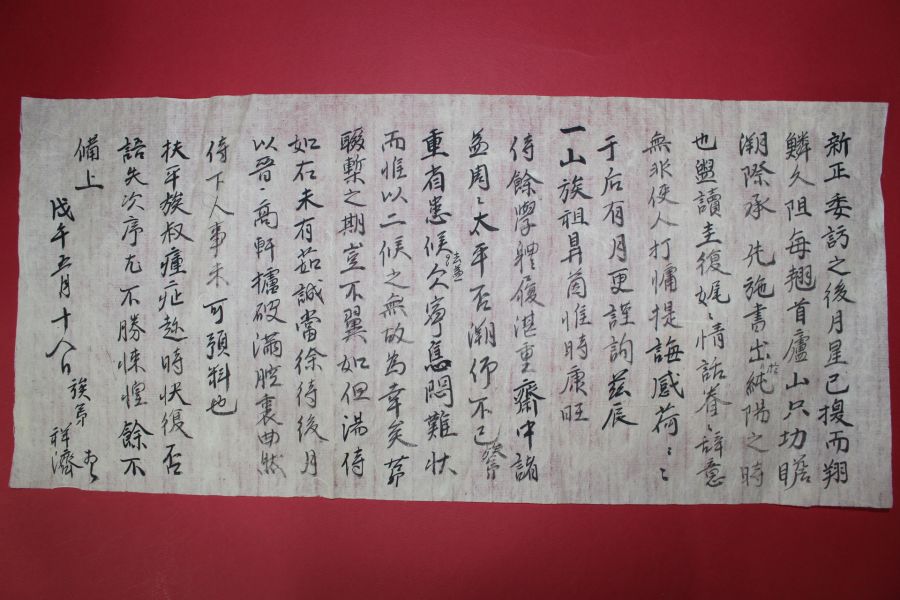 新正委訪之後月星已換而翔
鱗久阻每翹首廬山只切瞻
溯際承 先施書出於純陽之時
也盥讀圭復娓〻情話眷〻辞意
無非使人打慵提誨感荷〻〻
于后有月更謹詢玆辰
一山族祖鼻茵惟時康旺
侍餘學體履湛重齋中諸
益周〻太平否溯仰不已 族弟
重省患候欠寧 焦悶難狀
而惟以二候之無故為幸矣
輟塹之期豈不翼如但湯侍
如右未有茹誠當徐待後月
以晉高軒攄破滿腔裏曲然
侍下人事未可預料也
扶平族叔瘇疝趂時快復否
語失次序尤不勝悚惶餘不
備上
戊午五月十八日 族弟 祥濟